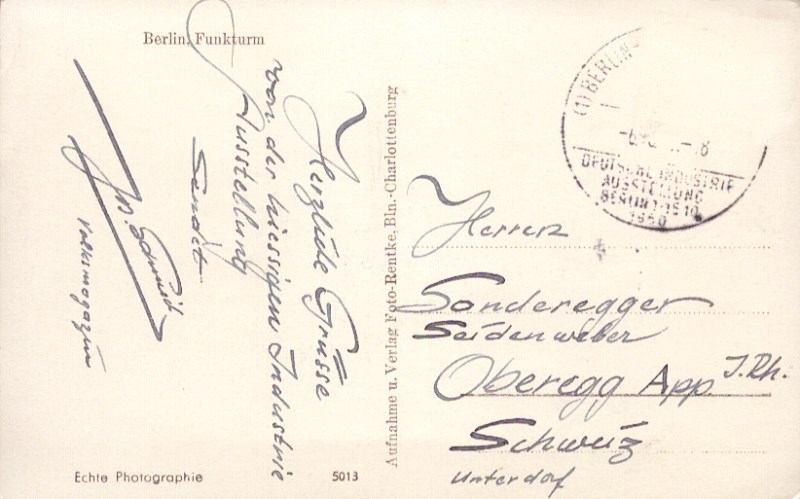 Berlin, Funkturm
Herzliche Grüsse
von der hiessigen Industrie
Ausstellung
Sendet
W. Schmidt
Volksmagazin
Echte Photographie
5013
Aufnahme u. Verlag Foto-Rentke, Bln.-Charlottenburg
(1) BERLIN
DEUTSCHE INDUSTRIE
AUSSTELLUNG
BERLIN 1.-15.10.
1950
Herren
Sonderegger
Seidenweber
Oberegg App. I. Rh.
Schweiz
Unterdorf